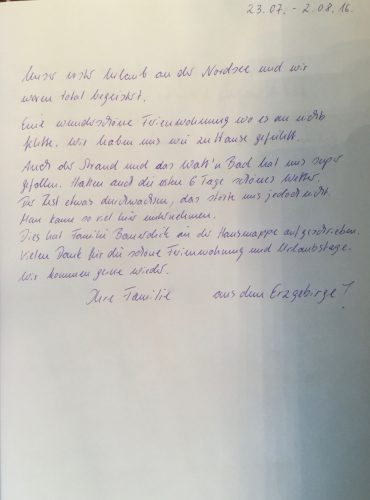 23.07. - 2.08.16.
Unser erster Urlaub an der Nordsee und wir
waren total begeistert.
Eine wunderschöne Ferienwohnung wo es an nichts
fehlte. Wir haben uns wie zu Hause gefühlt.
Auch der Strand und das Watt'n Bad hat uns super
gefallen. Hatten auch die ersten 6 Tage schönes Wetter.
Der Rest etwas durchwachsen, das störte uns jedoch nicht.
Man kann so viel hier unternehmen.
Dies hat Familie in der Hausmappe aufgeschrieben.
Vielen Dank für die schöne Ferienwohnung und Urlaubstage.
Wir kommen gerne wieder.
Ihre Familie aus dem Erzgebirge!